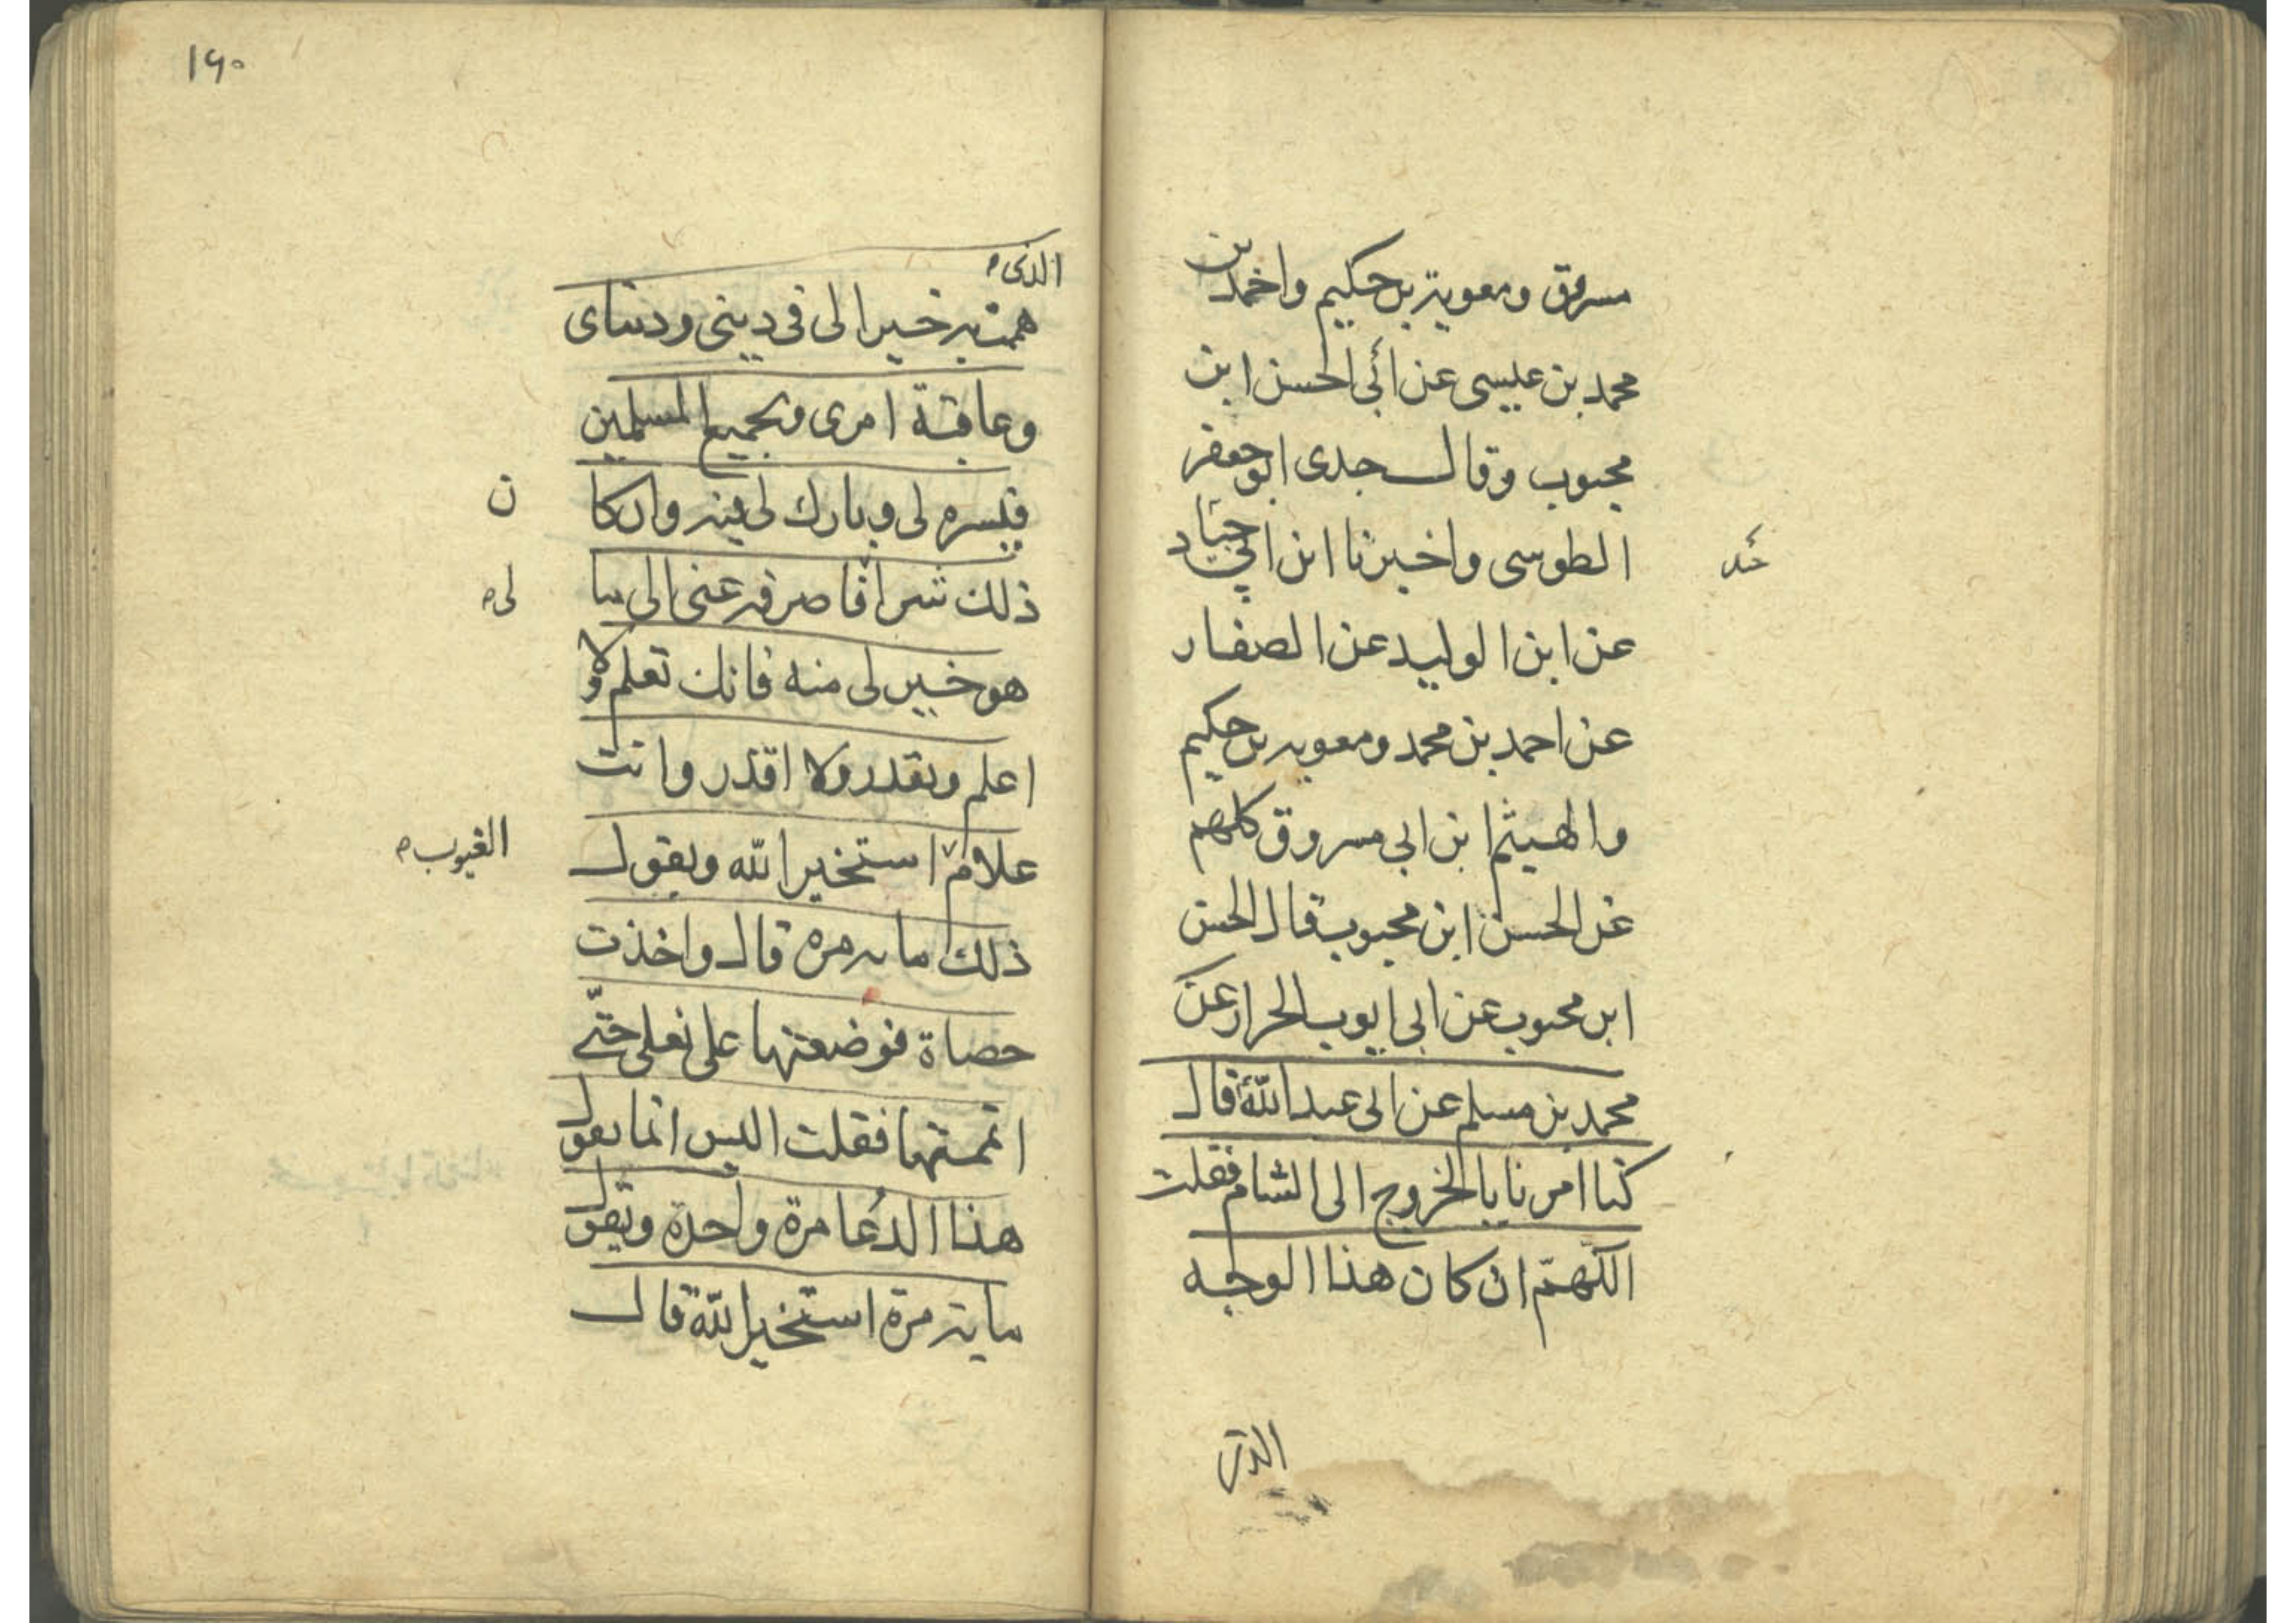 مسروق ومعوية بن حكيم واحمد بن
محمد بن عيسى عن أبي الحسن ابن
محبوب وقال جدى ابو جعفر
الطوسى واخبرنا ابن ابي جيد
عن ابن الوليد عن الصفار
عن احمد بن محمد ومعويه بن حكيم
والهيثم ابن ابي مسروق كلهم
عن الحسن ابن محبوب قال الحسن
ابن محبوب عن ابي ايوب الخراز عن
محمد بن مسلم عن ابى عبد الله قال
كنا امرنا بالخروج الى الشام فقلت
اللهم ان كان هذا الوجه
الذى
١٩٠
الذى
هممت به خيرا لى فى دينى ودنياى
وعاقبة امرى ولجميع المسلمين
فيسره لى وبارك لى فيه وان كا
ن
ذلك شرا فاصرفه عنى الى ما
لى
هو خير لى منه فانك تعلم ولا
اعلم وتقدر ولا اقدر وانت
علام استخير الله ويقول
الغيوب
ذلك مايه مره قال واخذت
حصاة فوضعتها على نعلى حتى
اتممتها فقلت اليس انما يقول
هذا الدعا مرة واحدة ويقول
ماية مرة استخير الله قال